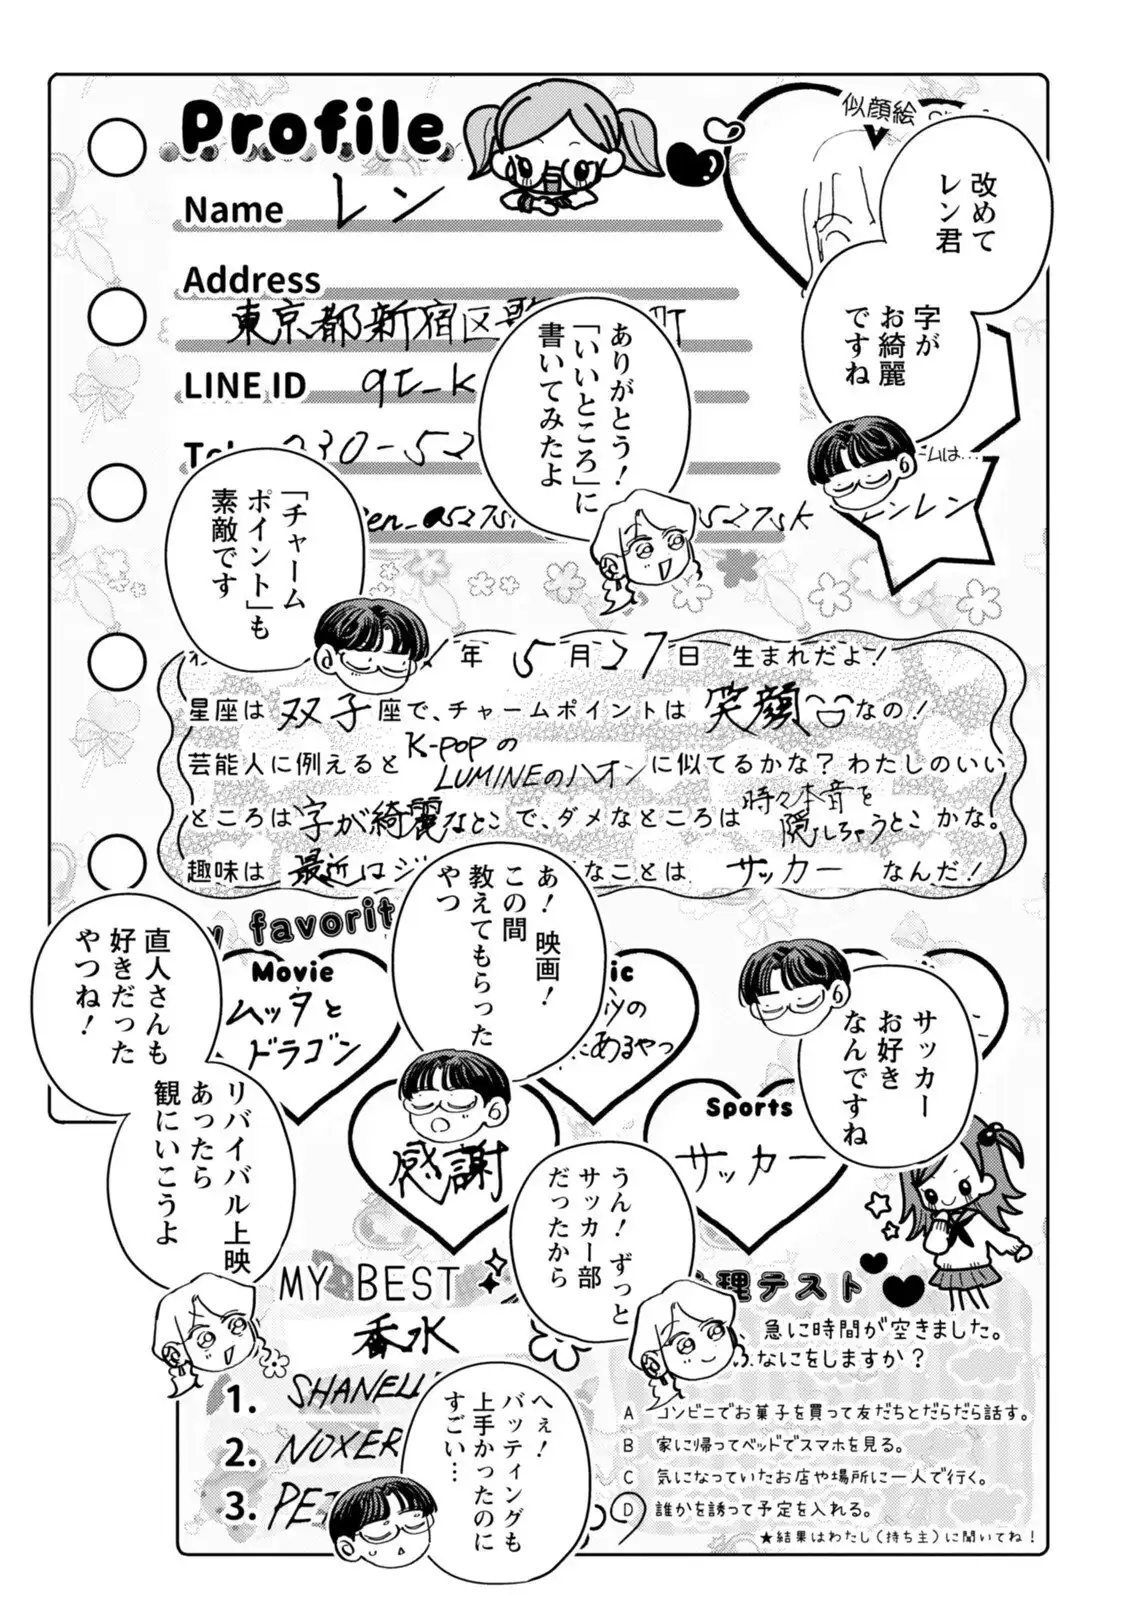 Profile
似顔絵
Name レン
改めて
レン君
字が
お綺麗
ですね
Address
東京都新宿区
町
ありがとう！
「いいところ」に
書いてみたよ
LINE ID
Tel 030-52
レンレン
「チャーム
ポイント」も
素敵です
年 5月27日 生まれだよ！
星座は 双子 座で、チャームポイントは 笑顔 なの！
芸能人に例えると K-popの
LUMINEのハオン に似てるかな？ わたしのいい
ところは 字が綺麗なとこ で、ダメなところは 時々本音を
隠しちゃうとこ かな。
趣味は 最近はジ
なことは サッカー なんだ！
favorit
あ！映画！
この間
教えてもらった
やつ
直人さんも
好きだった
やつね！
リバイバル上映
あったら
観にいこうよ
Movie
ムッタと
ドラゴン
ic
にあるやつ
サッカー
お好き
なんですね
感謝
Sports
サッカー
うん！ずっと
サッカー部
だったから
MY BEST
香水
1. SHANELL
2. NOXER
3. PE
へぇ！
バッティングも
上手かったのに
すごい…
理テスト
、急に時間が空きました。
なにをしますか？
A コンビニでお菓子を買って友だちとだらだら話す。
B 家に帰ってベッドでスマホを見る。
C 気になっていたお店や場所に一人で行く。
D 誰かを誘って予定を入れる。
★結果はわたし（持ち主）に聞いてね！